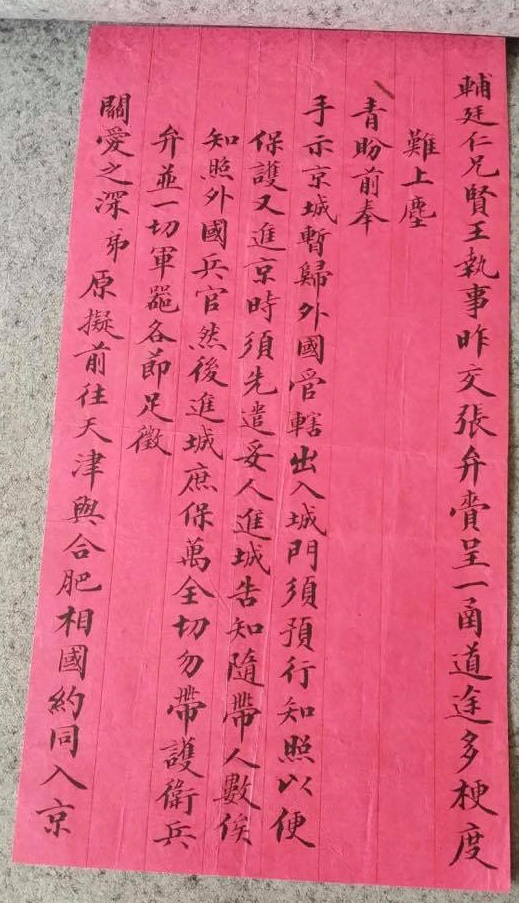 輔廷仁兄賢王執事昨交張弁賷呈一函道途多梗度
難上塵
青盼前奉
手示京城暫歸外國管轄出入城門須預行知照以便
保護又進京時須先遣妥人進城告知隨帶人數俟
知照外國兵官然後進城庶保萬全切勿帶護衛兵
弁並一切軍器各節足徵
關愛之深弟原擬前往天津與合肥相國約同入京